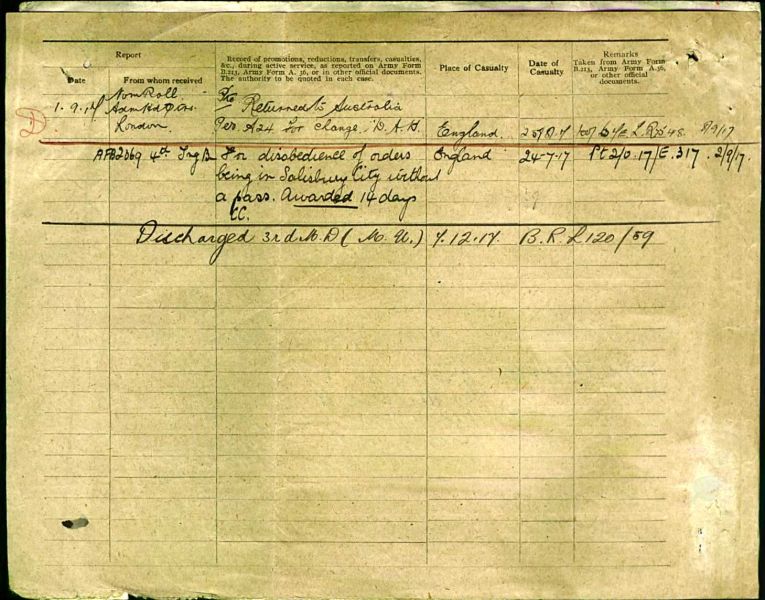 Report
Date
From whom received
Record of promotions, reductions, transfers, casualties,
&c., during active service, as reported on Army Form
B.213, Army Form A. 36, or in other official documents.
The authority to be quoted in each case.
Place of Casualty
Date of
Casualty
Remarks
Taken from Army Form
B.213, Army Form A.36,
or other official
documents.
D
1.9.17
Nom Roll
Admin Hdqrs
London
Returned to Australia
Per. A24 For change. D.A.H.
England
4th Tng B.
For disobedience of orders
being in Salisbury City without
a pass. Awarded 14 days
CC.
England
24-7-17
Pt 2/0.17/E.317. 2/9/17.
Discharged 3rd M.D (M.U.) 7.12.17. B.R.L 120/59